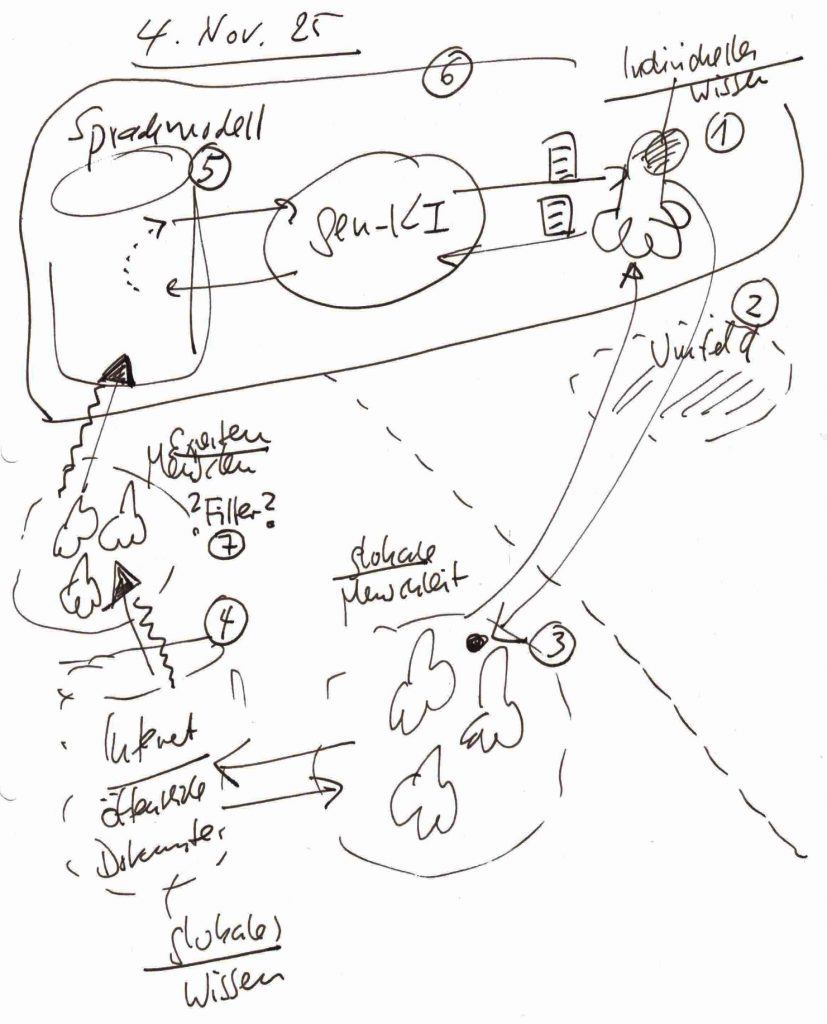 4. Nov. 25
6
Individuelles
Wissen
1
Sprachmodell
5
gen-KI
2
Umfeld
Menschen
?Filter?
7
globale
Menschheit
4
3
Internet
öffentliche
Dokumente
globales
Wissen